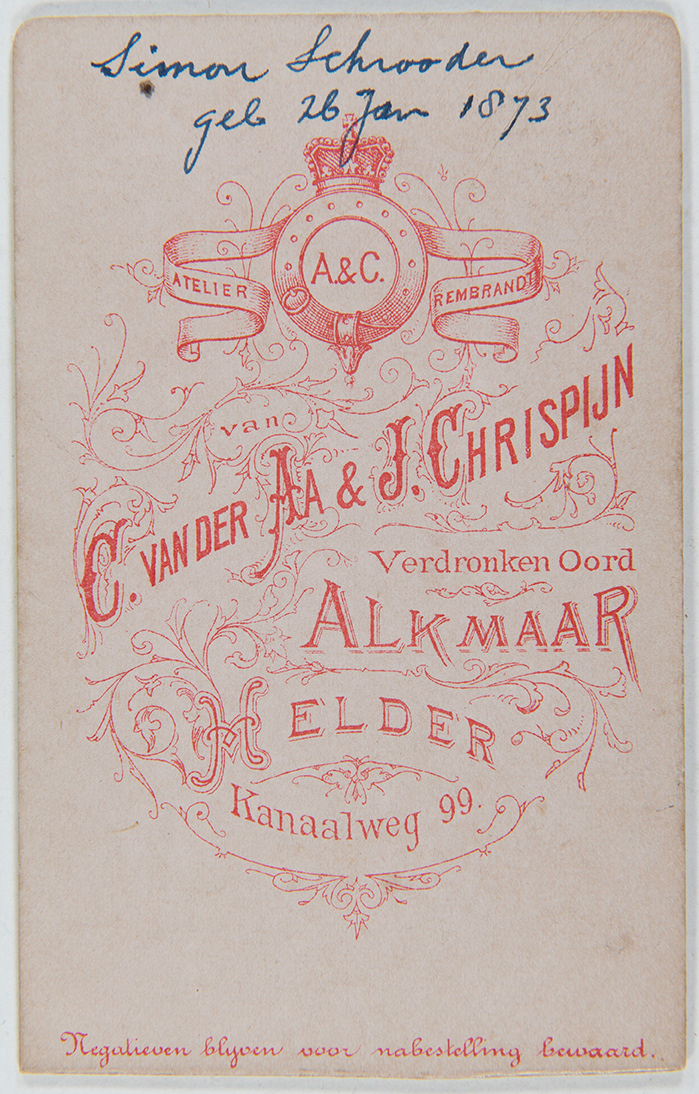 Simon Schrooder
geb 26 Jan 1873
A.&C.
ATELIER REMBRANDT
van
C. VAN DER AA & J. CHRISPIJN
Verdronken Oord
ALKMAAR
HELDER
Kanaalweg 99.
Negatieven blyven voor nabestelling bewaard.